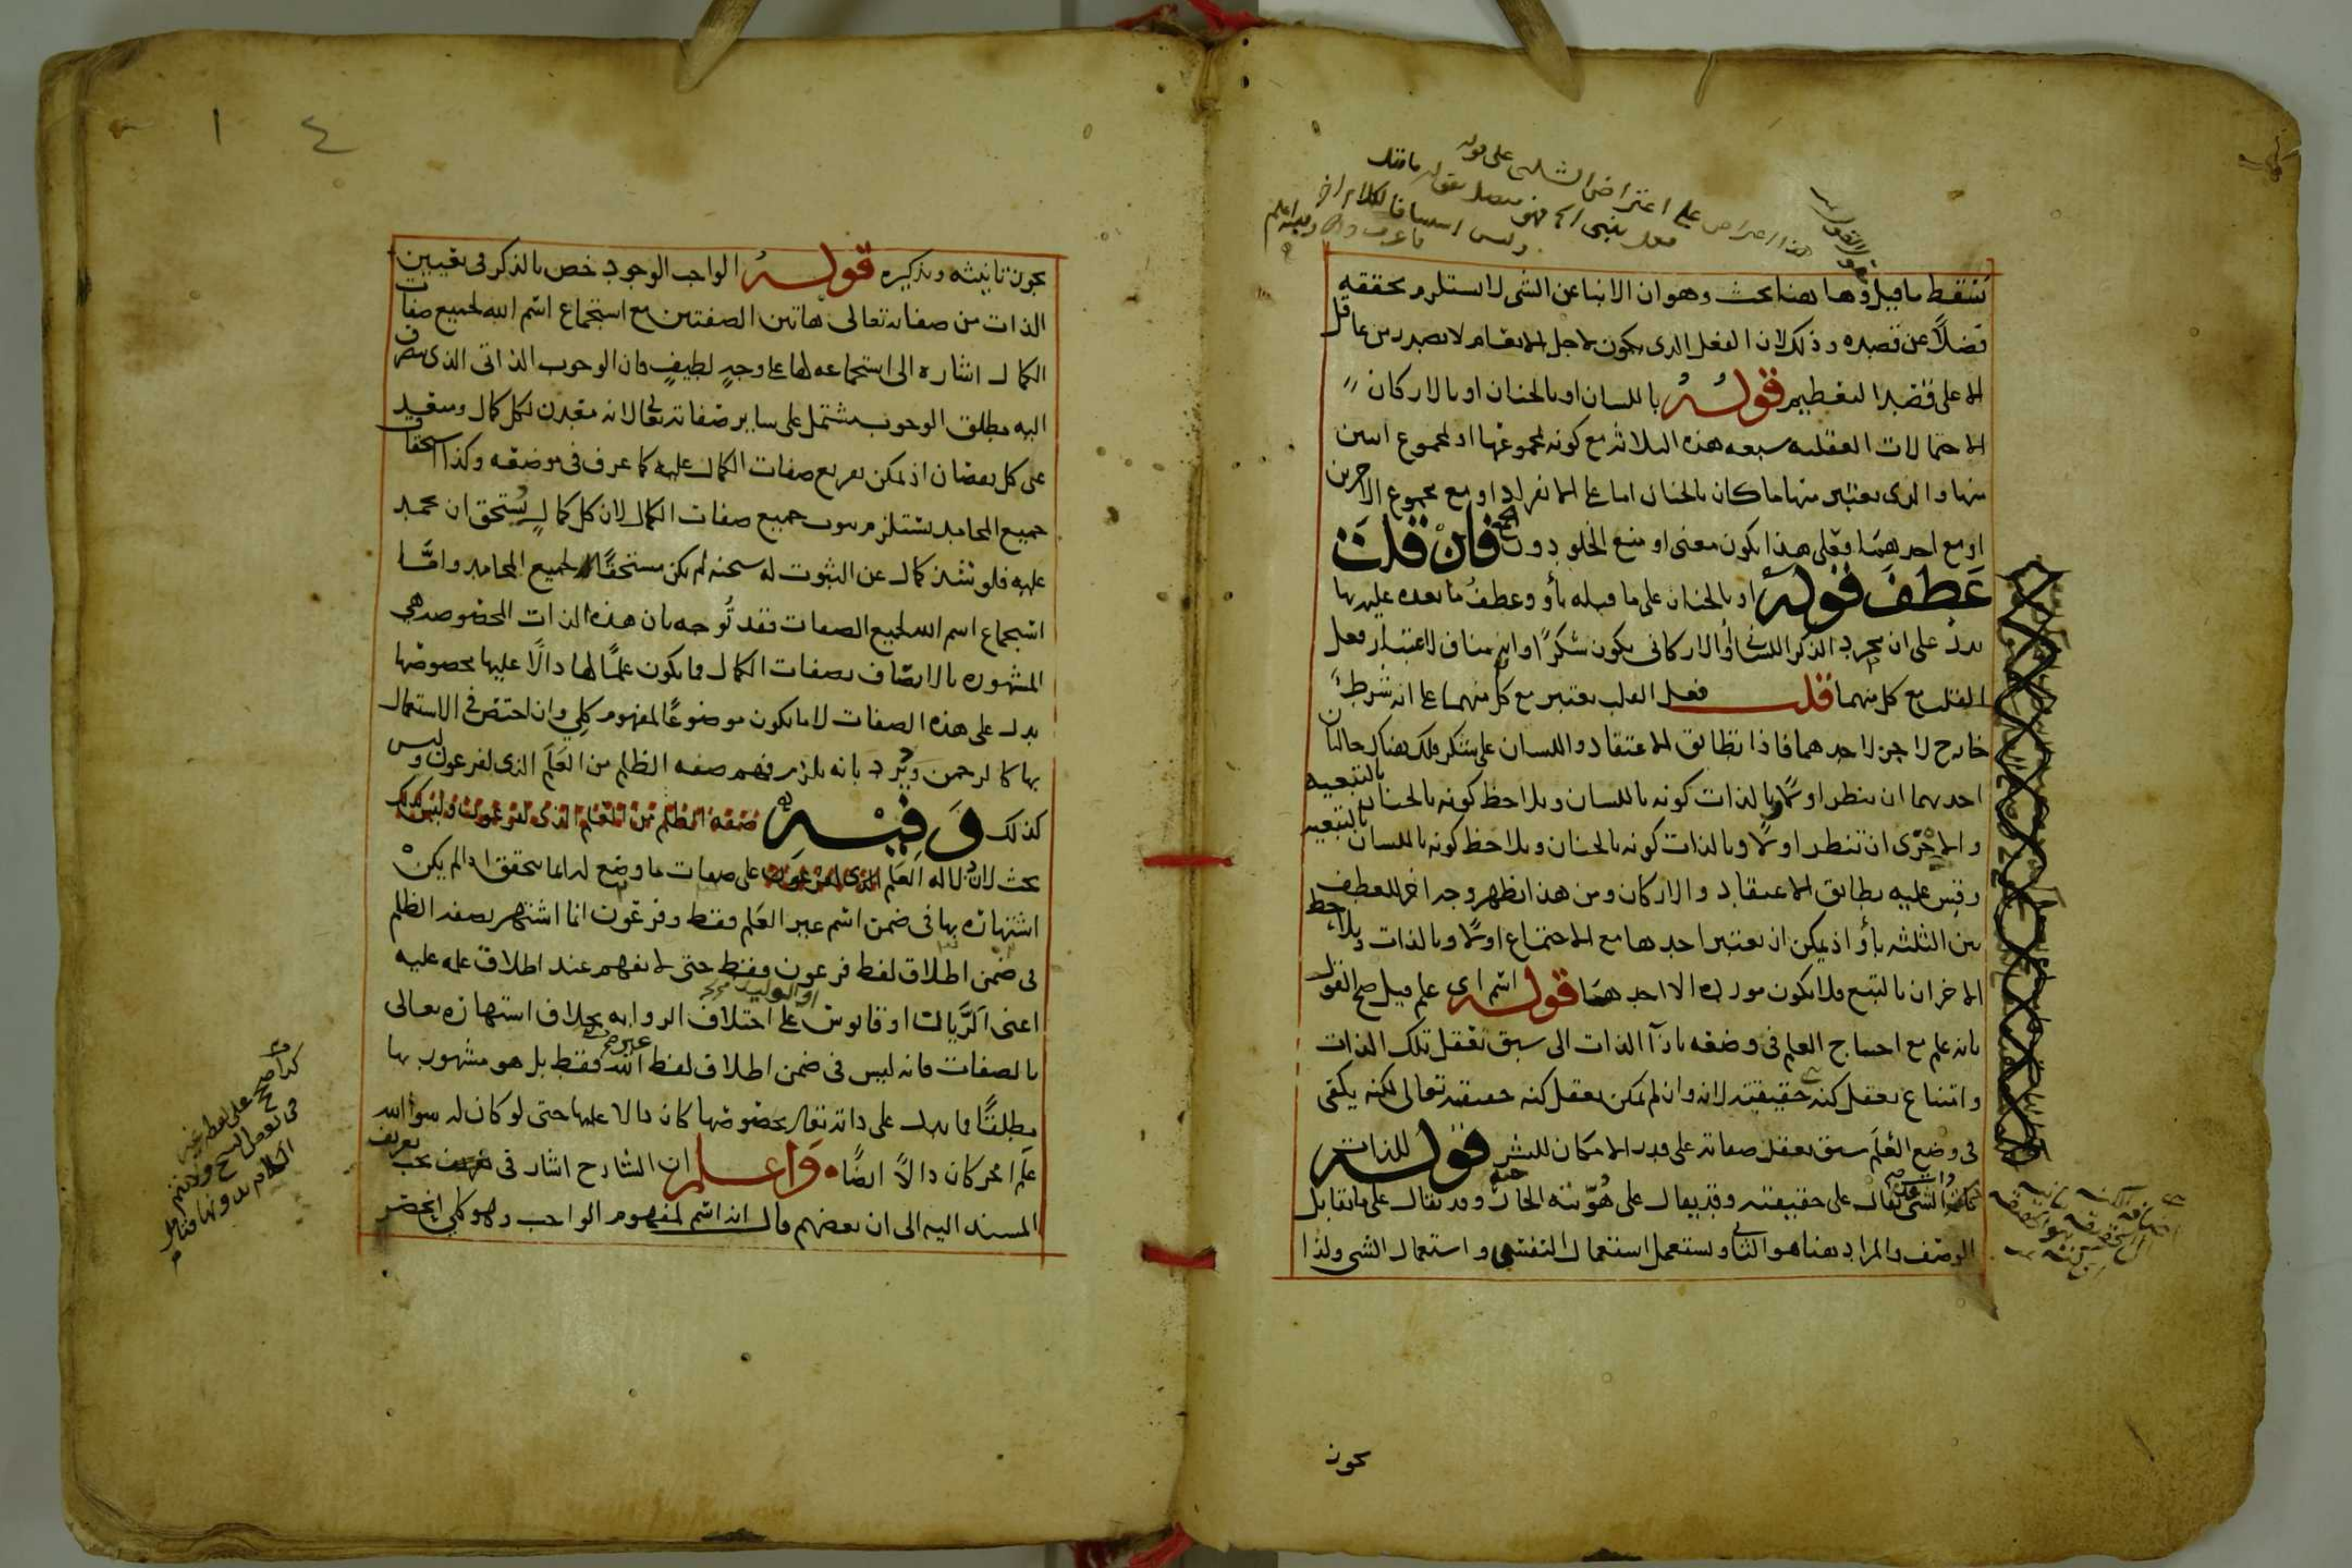 فسقط ما قيل وها هنا بحث وهو ان الانبا عن الشى لا يستلزم تحققه
فضلًا عن قصده وذلك لان الفعل الذى يكون لاجل الانعام لا يصدر من عاقل
الا على قصد التعظيم قوله باللسان او بالجنان او بالاركان
الاحتمالات العقليه سبعه هذه الثلاثه مع كونه لمجموعها او لمجموع اثنين
منها والذى يعتبر منها ما كان بالجنان اما على الانفراد او مع مجموع الاخرين
او مع احدهما فعلى هذا يكون معنى او منع الخلو دون الجمع فان قلت
عطف قوله او بالجنان على ما قبله بأو وعطف ما بعده عليه بها
يدل على ان مجرد الذكر اللسانى او الاركانى يكون شكرًا وانه مناف لاعتبار فعل
القلب مع كل منهما قلت فعل القلب يعتبر مع كل منهما على انه شرط
خارج لا جزء لاحدهما فاذا تطابق الاعتقاد واللسان على شكر فلك هناك حالتان
احديهما ان ينظر اولًا وبالذات كونه باللسان ويلاحظ كونه بالجنان بالتبعيه
والاخرى ان تنظر اولا وبالذات كونه بالجنان ويلاحظ كونه باللسان بالتبعيه
وقس عليه تطابق الاعتقاد والاركان ومن هذا يظهر وجه اخر للعطف
بين الثلثه بأو اذ يمكن ان يعتبر احدها مع الاجتماع اولًا وبالذات ويلاحظ
الاخران بالتبع فلا يكون مورده الا احدهما قوله اسم اى علم قيل صح القول
بانه علم مع احتياج العلم فى وضعه بازآ الذات الى سبق تعقل تلك الذات
وامتناع تعقل كنه حقيقته لانه وان لم يمكن تعقل كنه حقيقته تعالى لكنه يكفى
فى وضع العلم سبق تعقل صفاته على قدر الامكان للبشر قوله للذات
ذات الشى يقال على حقيقته وقد يقال على هويته الخارجيه وقد يقال على ما يقابل
الوصف والمراد هنا هو الثانى ويستعمل استعمال النفس واستعمال الشى ولذا
يجوز
يجوز تانيثه وتذكيره قوله الواجب الوجود خص بالذكر فى تعيين
الذات من صفاته تعالى هاتين الصفتين مع استجماع اسم الله لجميع صفات
الكمال اشاره الى استجماعه لها على وجه لطيف فان الوجوب الذاتى الذى ينصرف
اليه مطلق الوجوب مشتمل على ساير صفاته تعالى لانه معدن لكل كمال ومبعد
عن كل نقصان اذ يمكن تفريع صفات الكمال عليه كما عرف فى موضعه وكذا استحقاق
جميع المحامد يستلزم ثبوت جميع صفات الكمال لان كل كمال يستحق ان يحمد
عليه فلو شذ كمال عن الثبوت له سبحنه لم يكن مستحقًا لجميع المحامد وامَّا
استجماع اسم الله لجميع الصفات فقد تُوجه بان هذه الذات المخصوصه هى
المشهوره بالاتصاف بصفات الكمال فما يكون علمًا لها دالًا عليها بخصوصها
يدل على هذه الصفات لا ما يكون موضوعًا لمفهوم كلى وان اختص فى الاستعمال
بها كالرحمن ويُرد بانه يلزم فهم صفه الظلم من العَلَم الذى لفرعون وليس
كذلك وَفِيْهِ صفه الظلم من العلم الذى لفرعون وليس كذلك
بحث لان دلاله العَلَم الذى لفرعون على صفات ما وضع له انما يتحقق اذا لم يكن
اشتهاره بها فى ضمن اسم غير العَلَم فقط وفرعون انما اشتهر بصفه الظلم
فى ضمن اطلاق لفظ فرعون فقط حتى لا يفهم عند اطلاق علمه عليه
اعنى الرَّيان او قابوس على اختلاف الروايه بخلاف اشتهاره تعالى
او الوليد
بالصفات فانه ليس فى ضمن اطلاق لفظ غير الله فقط بل هو مشهور بها
مطلقًا فما يدل على ذاته تعالى بخصوصها كان دالا عليها حتى لو كان له سوا الله
علم اخر كان دالًا ايضًا وَاعلم ان الشارح اشار فى تعريف
المسند اليه الى ان بعضهم قال انه اسم لمفهوم الواجب وهو كلى انحصر